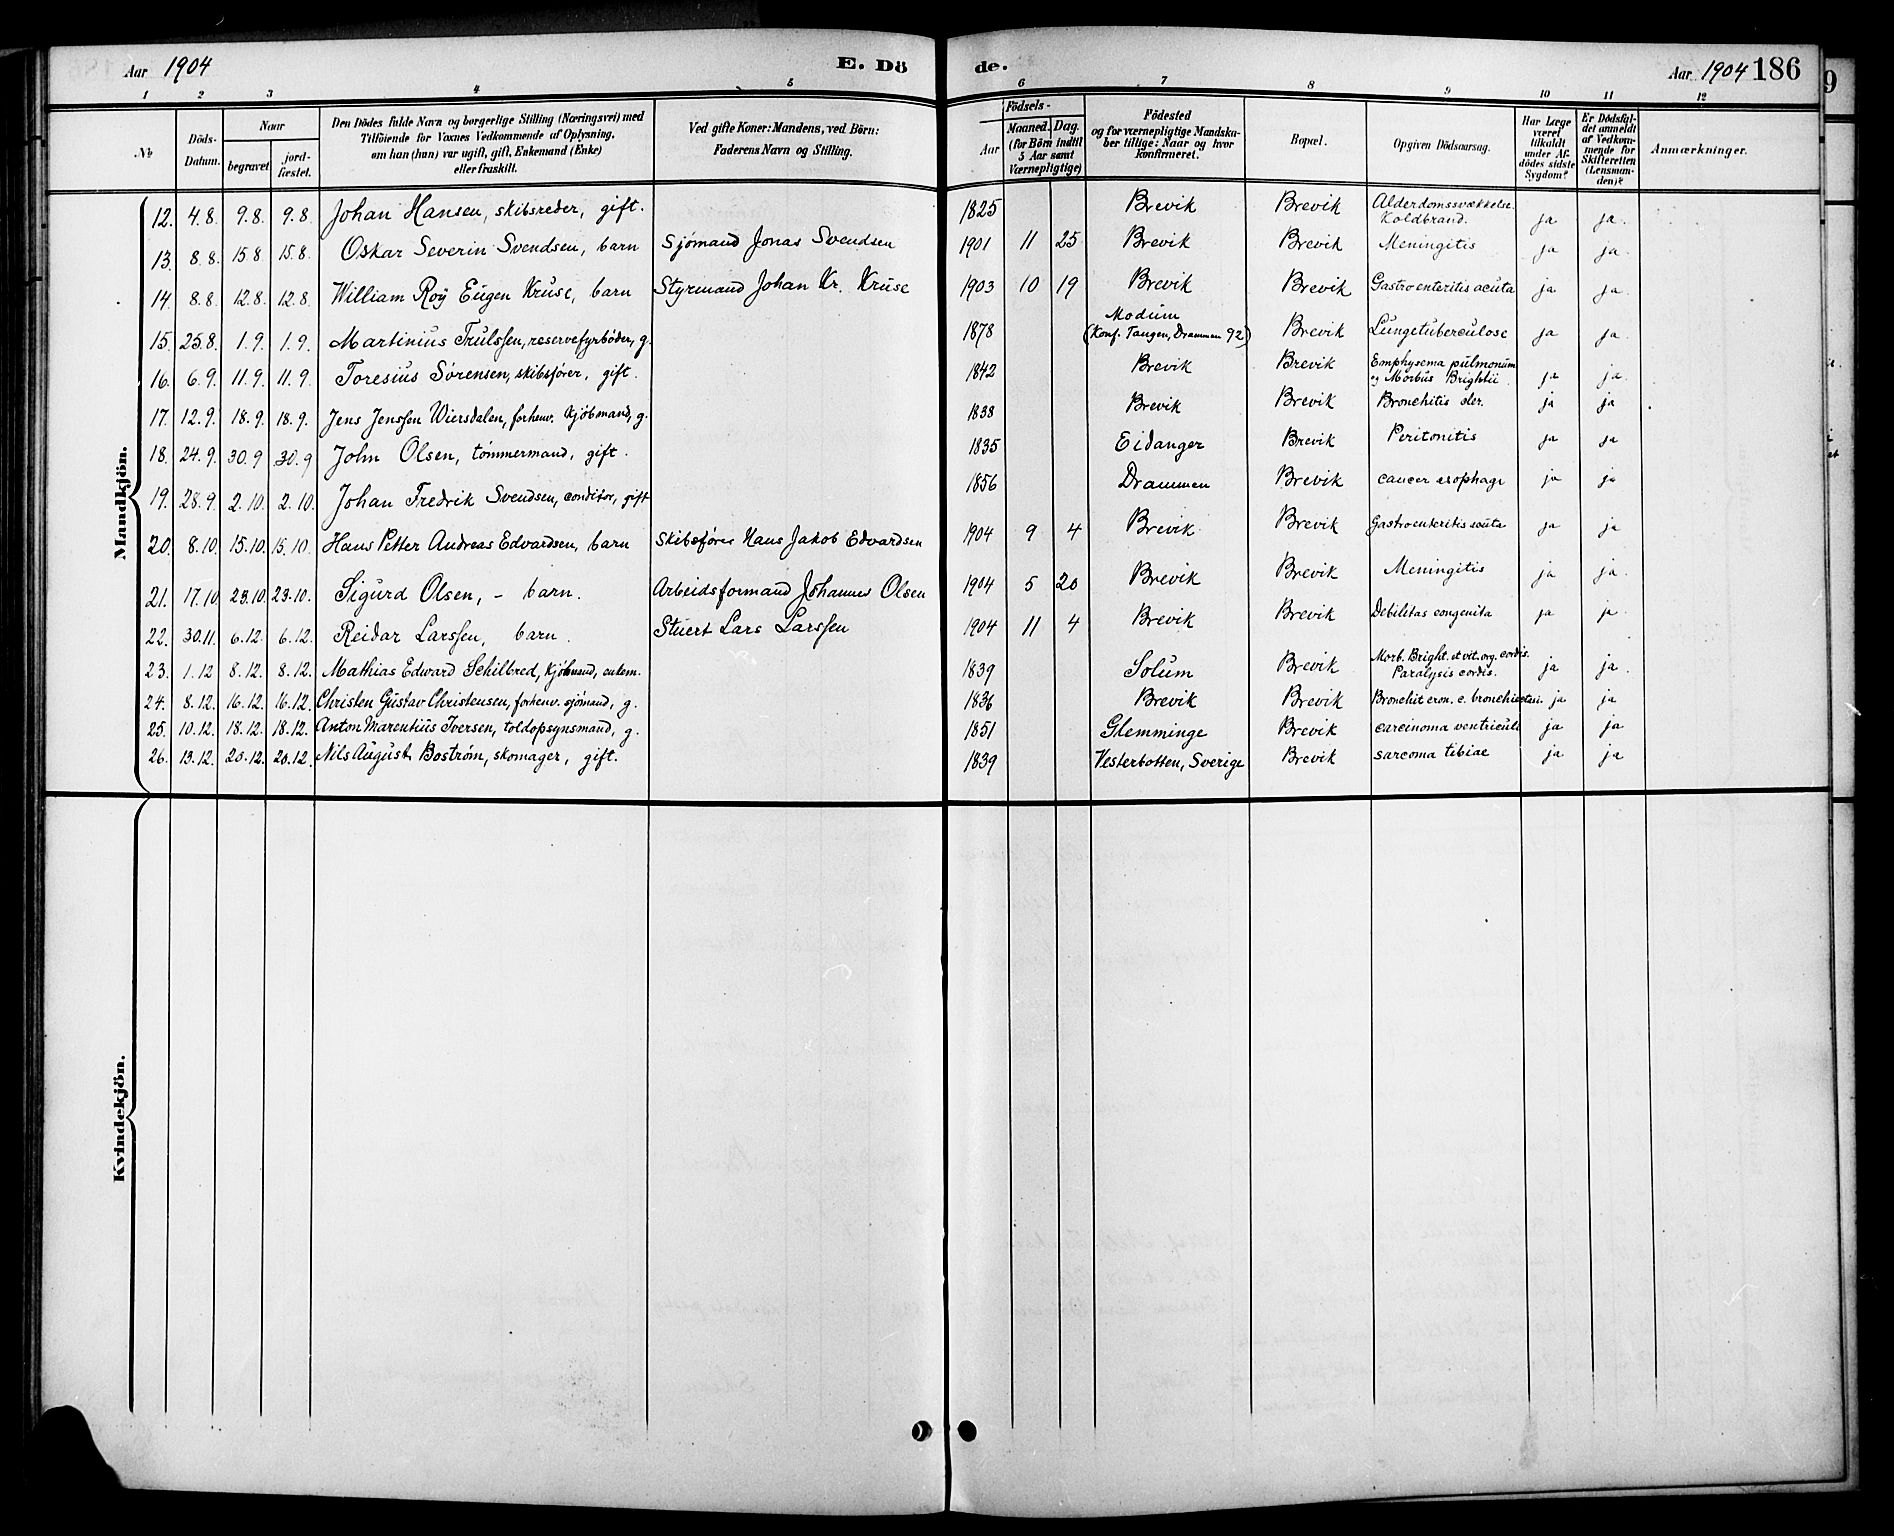 Aar 1904 E. Dö de. Aar 1904 186
1 2 3 4 5 6 7 8 9 10 11 12
No
Döds-Datum.
Naar
begravet
jordfæstet.
Den Dödes fulde Navn og borgerlige Stilling (Næringsvei) med
Tilföiende for Voxnes Vedkommende af Oplysning,
om han (hun) var ugift, gift, Enkemand (Enke)
eller fraskilt.
Ved gifte Koner: Mandens, ved Börn:
Faderens Navn og Stilling.
Födsels-
Aar
Maaned. Dag.
(for Börn indtil
5 Aar samt
Værnepligtige)
Födested
og for værnepligtige Mandskaber tillige: Naar og hvor
konfirmeret.
Bopæl.
Opgiven Dödsaarsag.
Har Læge
været
tilkaldt
under Afdödes sidste
Sygdom?
Er Dödsfaldet anmeldt
af Vedkommende for
Skifteretten
(Lensmanden)?
Anmærkninger.
Mandkjön.
12. 4.8. 9.8. 9.8. Johan Hansen, skibsreder, gift. 1825 Brevik Brevik Alderdomssvækkelse. Koldbrand. ja ja.
13. 8.8. 15.8 15.8. Oskar Severin Svendsen, barn Sjømand Jonas Svendsen 1901 11 25 Brevik Brevik Meningitis ja ja.
14. 8.8. 12.8. 12.8. William Roÿ Eugen Kruse, barn Styrmand Johan Kr. Kruse 1903 10 19 Brevik Brevik Gastroenteritis acuta ja ja.
15. 25.8. 1.9. 1.9. Martinius Trulssen, reservefyrbøder, g. 1878 Modum (Konf. Tangen, Drammen 92) Brevik Lungetuberculose ja ja.
16. 6.9. 11.9. 11.9. Toresius Sørensen, skibsfører, gift. 1842 Brevik Brevik Emphysema pulmonum og Morbus Brightii. ja ja.
17. 12.9. 18.9. 18.9. Jens Jenssen Wiersdalen, forhenv. kjøbmand, g. 1838 Brevik Brevik Bronchitis ja ja
18. 24.9. 30.9 30.9 John Olsen, tømmermand, gift. 1835 Eidanger Brevik Peritonitis ja ja
19. 28.9. 2.10. 2.10. Johan Fredrik Svendsen, conditor, gift 1856 Drammen Brevik cancer øsophagi ja ja
20. 8.10. 15.10. 15.10. Hans Petter Andreas Edvardsen, barn Skibsfører Hans Jakob Edvardsen 1904 9 4 Brevik Brevik Gastroenteritis acuta ja ja
21. 17.10. 23.10. 23.10. Sigurd Olsen, - barn. Arbeidsformand Johannes Olsen 1904 5 20 Brevik Brevik Meningitis ja ja.
22. 30.11. 6.12. 6.12. Reidar Larssen, barn. Stuert Lars Larssen 1904 11 4 Brevik Brevik Debilitas congenita ja ja.
23. 1.12 8.12. 8.12. Mathias Edward Schilbred, kjøbmand, enkem. 1839 Solum Brevik Morb. Bright. et vit. org. cordis. Paralysis cordis. ja ja.
24. 8.12. 16.12. 16.12. Christen Gustav Christensen, forhenv. sjømand, g. 1836 Brevik Brevik Bronchit cron. c. bronchiectasi. ja ja
25. 10.12. 18.12. 18.12. Anton Marentius Iversen, toldopsynsmand, g. 1851 Glemminge Brevik carcinoma ventriculi ja ja
26. 13.12. 20.12. 20.12. Nils August Boström, skomager, gift. 1839 Vesterbotten, Sverige Brevik sarcoma tibiae ja ja
Kvindekjön.